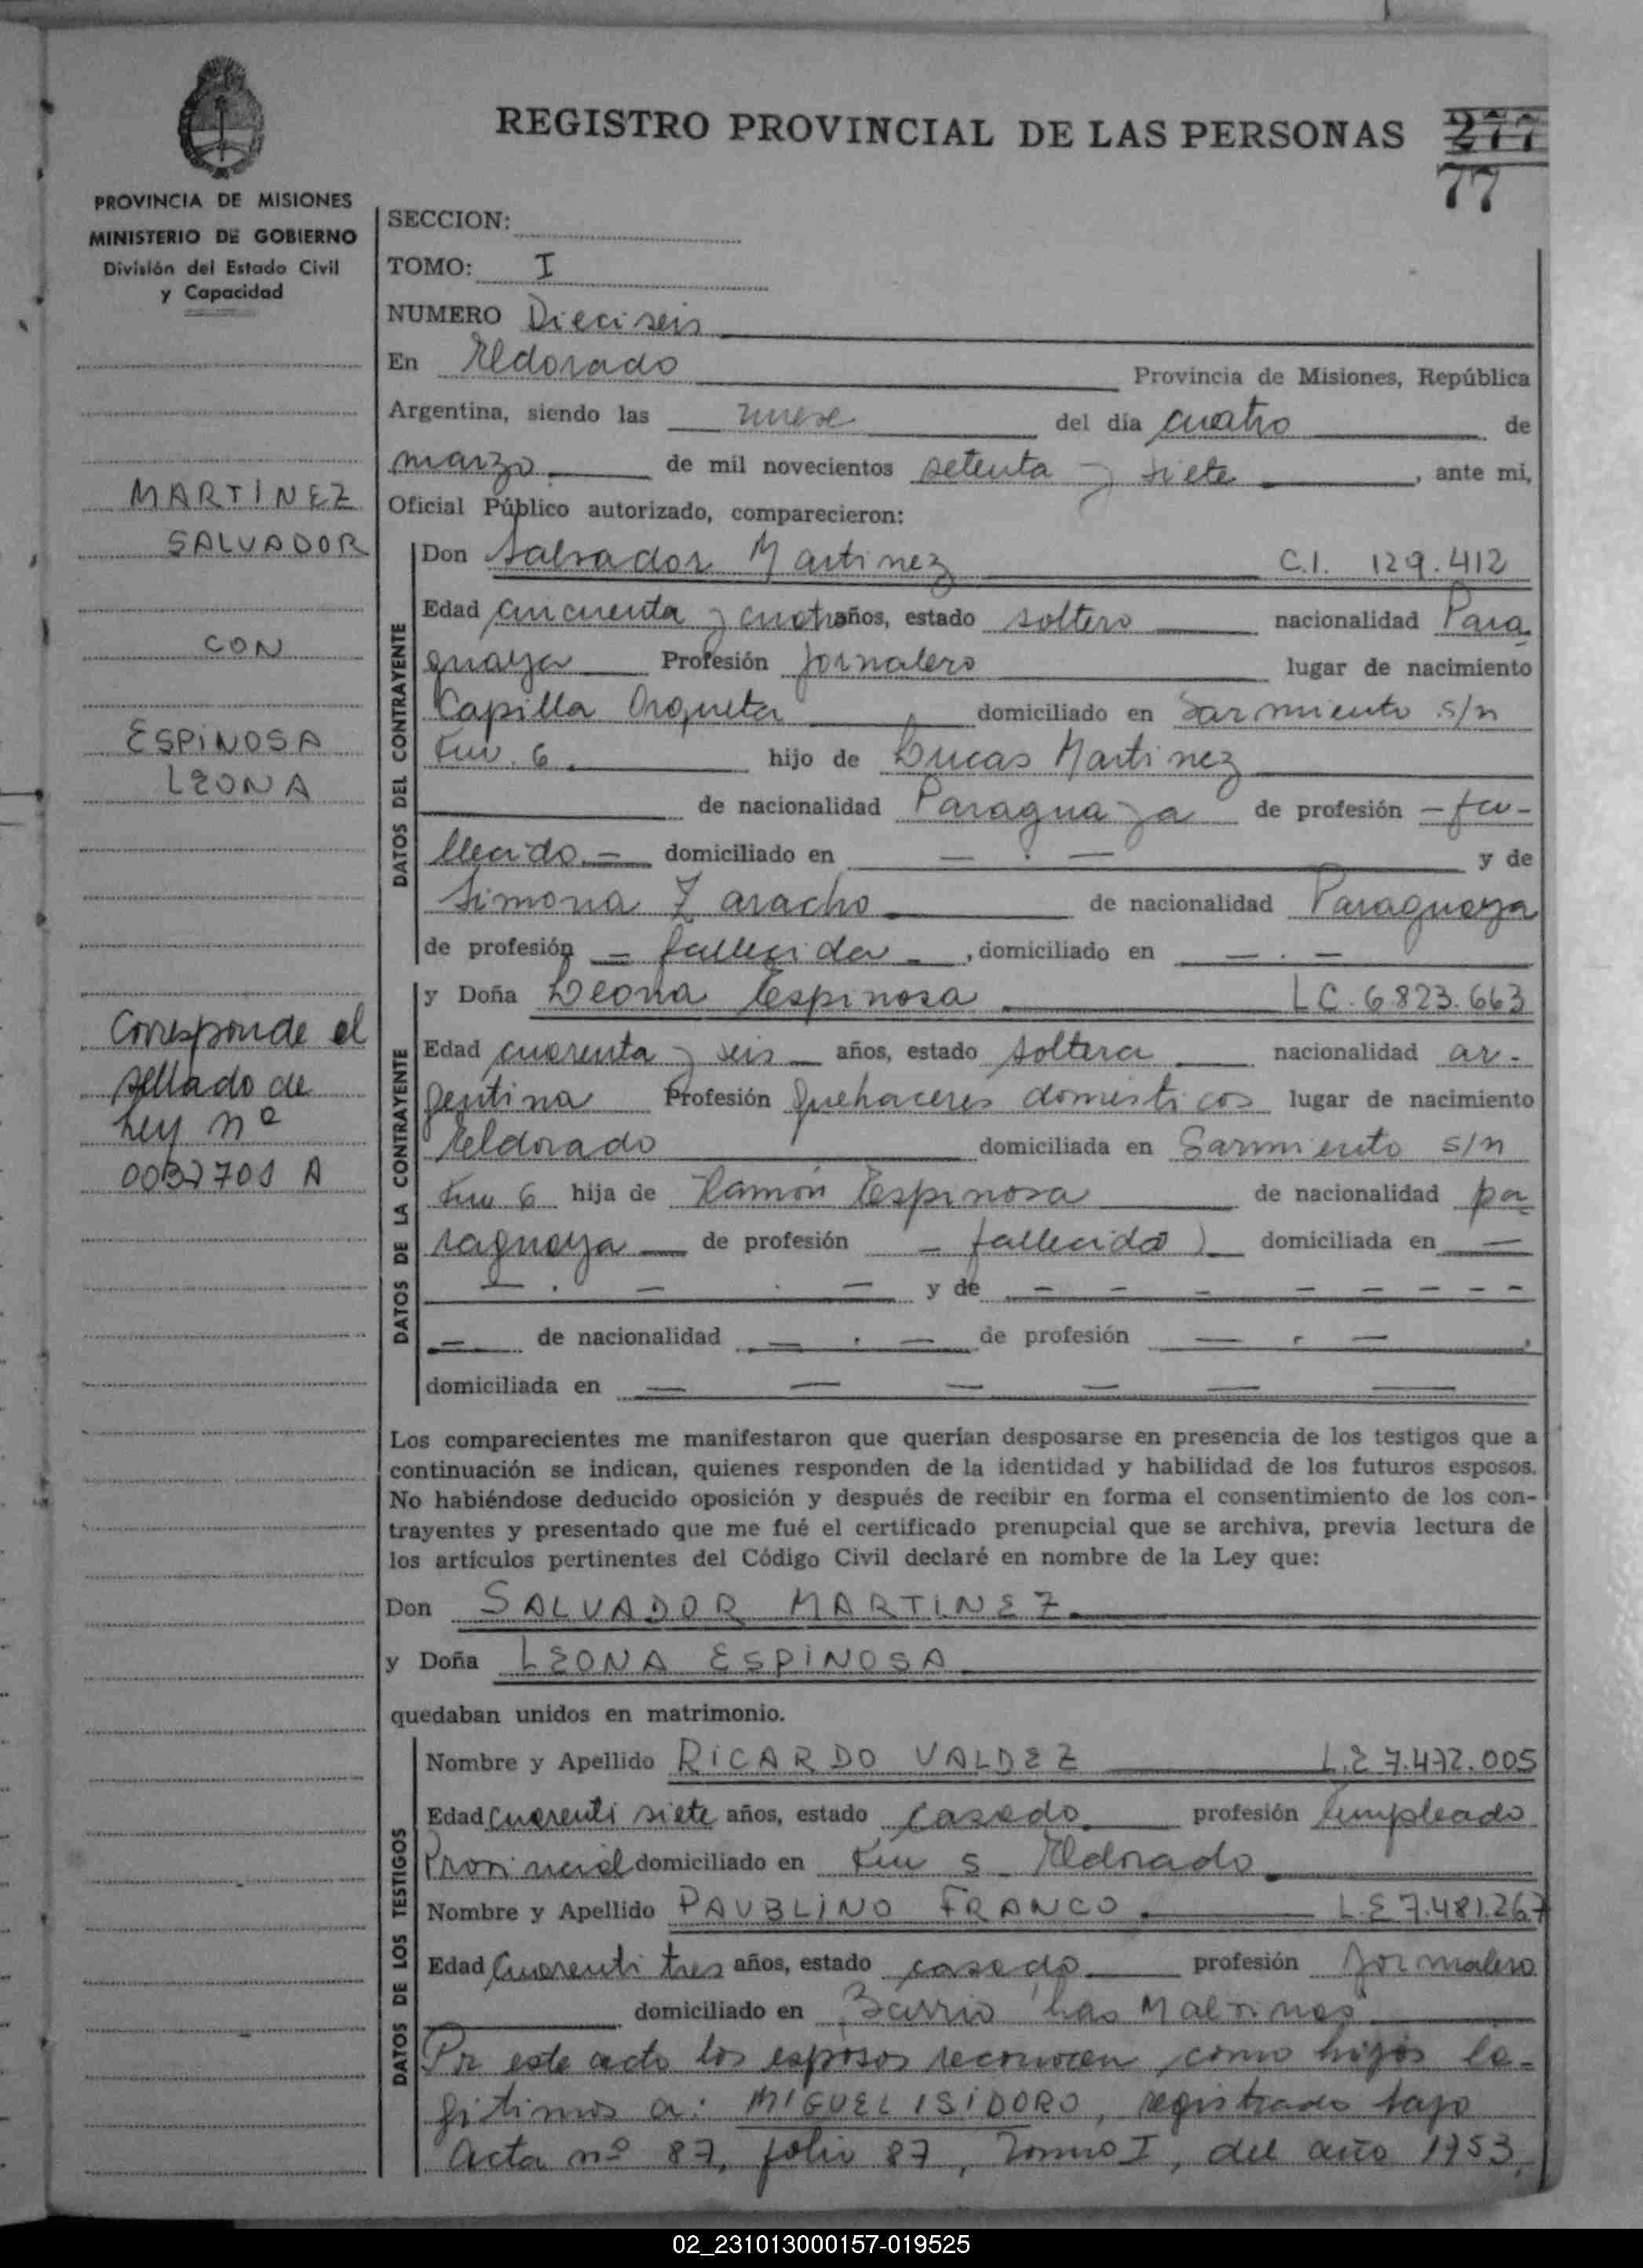 REGISTRO PROVINCIAL DE LAS PERSONAS
277
77
PROVINCIA DE MISIONES
MINISTERIO DE GOBIERNO
División del Estado Civil
y Capacidad
MARTINEZ
SALVADOR
CON
ESPINOSA
LEONA
Corresponde el
sellado de
Ley nº
0032701 A
SECCION:
TOMO: I
NUMERO Dieciseis
En Eldorado Provincia de Misiones, República
Argentina, siendo las nueve del día cuatro de
marzo de mil novecientos setenta y siete, ante mi,
Oficial Público autorizado, comparecieron:
DATOS DEL CONTRAYENTE
Don Salvador Martinez C.I. 129.412
Edad cincuenta y cuatro años, estado soltero nacionalidad Para
guaya Profesión Jornalero lugar de nacimiento
Capilla Orqueta domiciliado en Sarmiento s/n
Km. 6. hijo de Lucas Martinez
de nacionalidad Paraguaya de profesión - fa-
llecido.- domiciliado en - . - y de
Simona Zaracho de nacionalidad Paraguaya
de profesión - fallecida - , domiciliado en - . -
DATOS DE LA CONTRAYENTE
y Doña Leona Espinosa LC. 6.823.663
Edad cuarenta y seis años, estado soltera nacionalidad ar-
gentina Profesión quehaceres domesticos lugar de nacimiento
Eldorado domiciliada en Sarmiento s/n
Km 6 hija de Ramón Espinosa de nacionalidad pa
raguaya de profesión - fallecido) domiciliada en -
- . - . - y de - - - - - - - -
- de nacionalidad - . - de profesión - . - ,
domiciliada en - - - - - -
Los comparecientes me manifestaron que querían desposarse en presencia de los testigos que a
continuación se indican, quienes responden de la identidad y habilidad de los futuros esposos.
No habiéndose deducido oposición y después de recibir en forma el consentimiento de los con-
trayentes y presentado que me fué el certificado prenupcial que se archiva, previa lectura de
los artículos pertinentes del Código Civil declaré en nombre de la Ley que:
Don SALVADOR MARTINEZ
y Doña LEONA ESPINOSA
quedaban unidos en matrimonio.
DATOS DE LOS TESTIGOS
Nombre y Apellido RICARDO VALDEZ L.E 7.472.005
Edad cuarenti siete años, estado casado profesión Empleado
Provincial domiciliado en Km 5 Eldorado
Nombre y Apellido PAUBLINO FRANCO L.E 7.481.267
Edad Cuarenti tres años, estado casado profesión Jornalero
domiciliado en Barrio "Las Malvinas"
Por este acto los esposos reconocen como hijos le-
gitimos a: MIGUEL ISIDORO, registrado bajo
acta nº 87, folio 87, Tomo I, del año 1953,
02_231013000157-019525